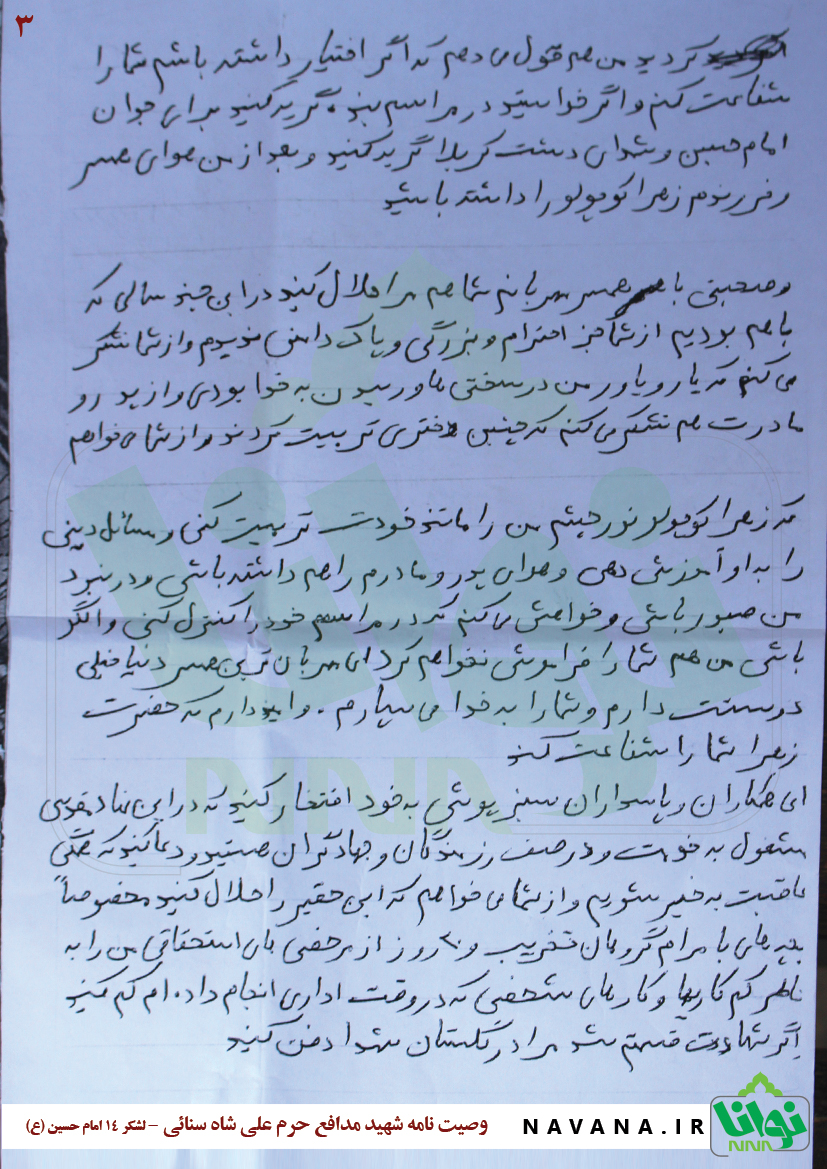 ۳
کردید من هم قول می دهم که اگر اختیار داشته باشم شما را
شفاعت کنم و اگر خواستید در مراسم بنده گریه کنید برای جوان
امام حسین و شهدای دشت کربلا گریه کنید و بعد از من هوای همسر
و فرزندم زهرا کوچولو را داشته باشید
و صحبتی با همسر مهربانم شما هم مرا حلال کنید در این چند سالی که
با هم بودیم از شما جز احترام و بزرگی و پاک دامنی ندیدم و از شما تشکر
می کنم که یار و یاور من در سختی ها و رسیدن به خدا بودی و از پدر و
مادرت هم تشکر می کنم که چنین دختری تربیت کردند و از شما می خواهم
که زهرا کوچولو نور چشم من را مانند خودت تربیت کنی و مسائل دینی
را به او آموزش دهی و هوای پدر و مادرم را هم داشته باشی و در نبود
من صبور باشی و خواهش می کنم که در مراسم خود را کنترل کنی و الگو
باشی من هم شما را فراموش نخواهم کرد ای مهربان ترین همسر دنیا خیلی
دوستت دارم و شما را به خدا می سپارم . و امیدوارم که حضرت
زهرا شما را شفاعت کند
ای همکاران و پاسداران سبز پوش به خود افتخار کنید که در این نهاد مقدس
مشغول به خدمت و در صف رزمندگان و جهادگران هستید و دعا کنید که همگی
عاقبت به خیر شویم و از شما می خواهم که این حقیر را حلال کنید مخصوصاً
بچه های با مرام گروهان تخریب و ۲۰ روز از مرخصی های استحقاقی من را به
خاطر کم کاریها و کارهای شخصی که در وقت اداری انجام داده ام کم کنید
اگر شهادت قسمتم شد مرا در گلستان شهدا دفن کنید
نوانا
NNNN
وصیت نامه شهید مدافع حرم علی شاه سنائی – لشکر ۱۴ امام حسین (ع)
NAVANA.IR
نوانا
NNNN